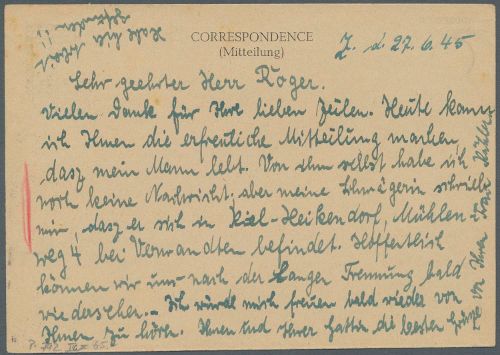 CORRESPONDENCE
(Mitteilung)
Z. d 27.6.45
Sehr geehrter Herr Roger.
Vielen Dank für Ihre lieben Zeilen. Heute kann
ich Ihnen die erfreuliche Mitteilung machen,
dasz mein Mann lebt. Von ihm selbst habe ich
noch keine Nachricht, aber meine Schwägerin schreibt
mir, dasz er sich in Kiel-Heikendorf, Mühlen-
weg 4 bei Verwandten befindet. Hoffentlich
können wir uns nach der langen Trennung bald
wiedersehen. Ich würde mich freuen bald wieder von
Ihnen zu hören. Ihnen und Ihrer Gattin die besten Grüsze
von Ihrer Frau